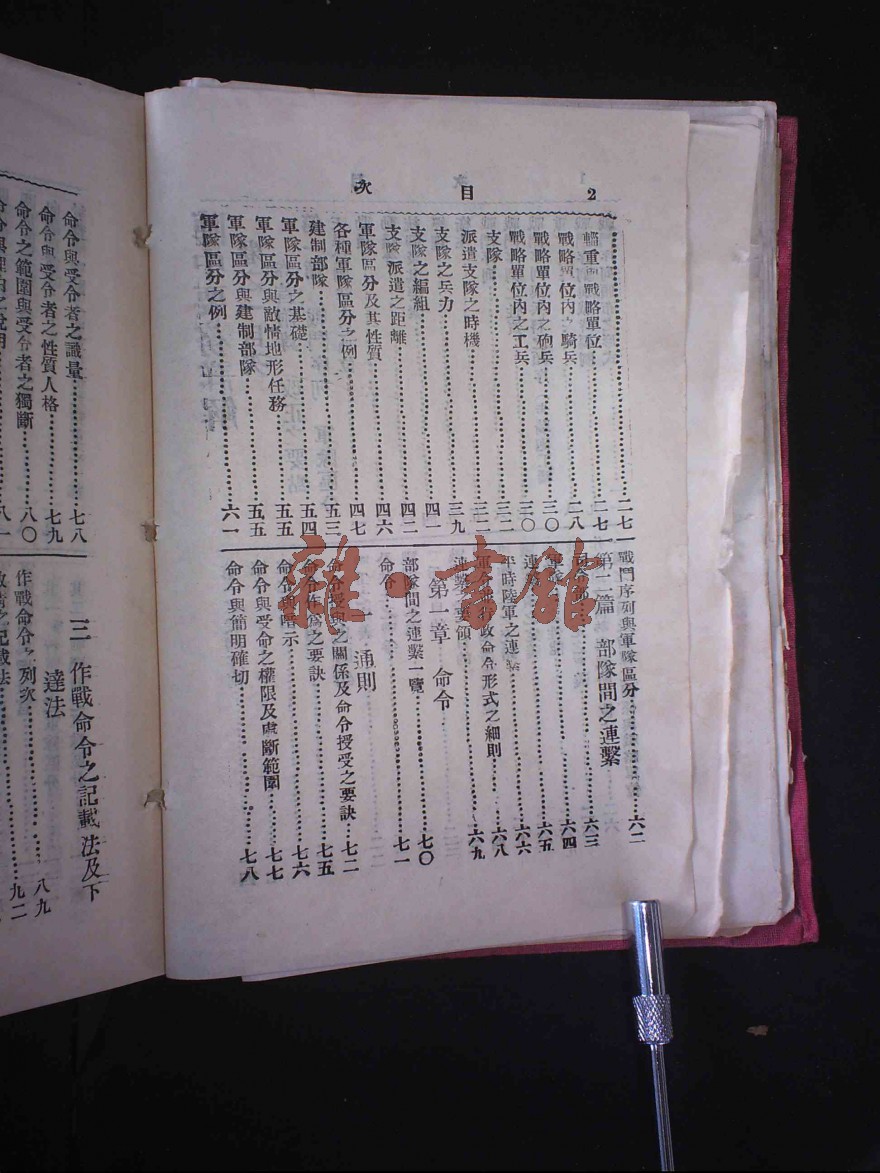 2 目 次
二七
輜重與戰略單位 二七
戰略單位內之騎兵 二八
戰略單位內之砲兵 三〇
戰略單位內之工兵 三〇
支隊 三二
派遣支隊之時機 三二
支隊之兵力 三九
支隊之編組 四一
支隊派遣之距離 四二
軍隊區分及其性質 四六
各種軍隊區分之例 四七
建制部隊 五三
軍隊區分之基礎 五四
軍隊區分與敵情地形任務 五五
軍隊區分與建制部隊 五五
軍隊區分之例 六一
戰鬥序列與軍隊區分 六二
第二篇 部隊間之連繫
六三
六四
六五
平時陸軍之連繫 六六
軍令 政命令形式之細則 六八
連繫之要領 六九
第一章 命令
部隊間之連繫一覽 七〇
命令 七一
一 通則
命令授與之關係及命令授受之要訣 七二
命令作為之要訣 七五
命令 暗示 七六
命令與受命之權限及處斷範圍 七七
命令與簡明確切 七八
命令與受令者之識量 七八
命令與受令者之性質人格 七九
命令之範圍與受令者之獨斷 八〇
八一
三 作戰命令之記載法及下
達法
作戰命令之列次 八九
之記載法 九二
雜·書館